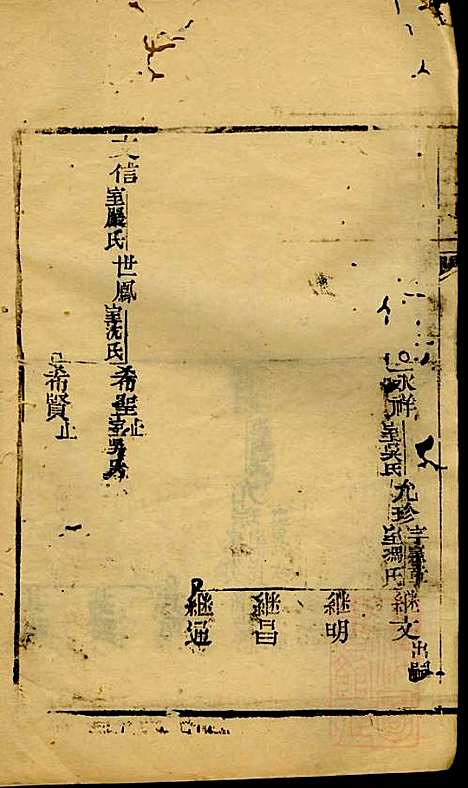 永祥室吳氏
允珍室馮氏
繼文出嗣
繼明
繼昌
繼通
文信室嚴氏
世鳳室沈氏
希聖止室吳氏
希賢止